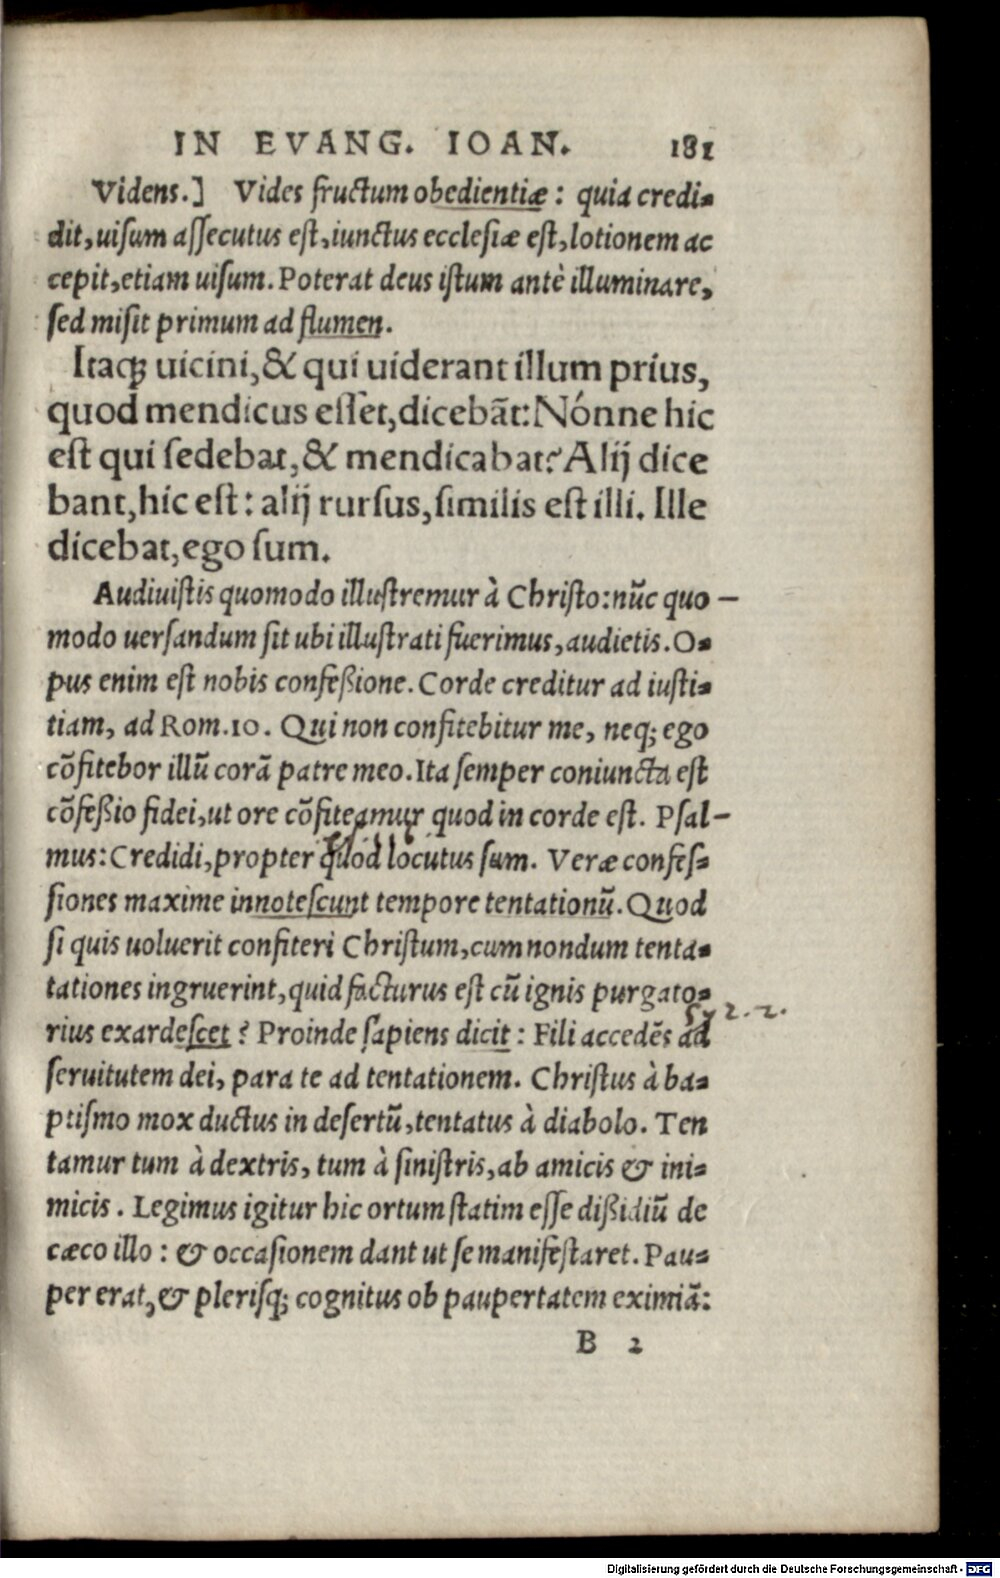 IN EVANG. IOAN. 181
Videns.] Vides fructum obedientiæ: quia credi-
dit, uisum assecutus est, iunctus ecclesiæ est, lotionem ac
cepit, etiam uisum. Poterat deus istum antè illuminare,
sed misit primum ad flumen.
Itaq; uicini, & qui uiderant illum prius,
quod mendicus esset, dicebãt: Nónne hic
est qui sedebat, & mendicabat? Alij dice
bant, hic est: alij rursus, similis est illi. Ille
dicebat, ego sum.
Audiuistis quomodo illustremur à Christo: nũc quo
modo uersandum sit ubi illustrati fuerimus, audietis. O-
pus enim est nobis confeßione. Corde creditur ad iusti-
tiam, ad Rom. 10. Qui non confitebitur me, neq; ego
cõfitebor illũ corã patre meo. Ita semper coniuncta est
cõfeßio fidei, ut ore cõfiteamur quod in corde est. Psal-
mus: Credidi, propter quod locutus sum. Veræ confes-
siones maxime innotescunt tempore tentationũ. Quod
si quis uoluerit confiteri Christum, cum nondum tenta-
tationes ingruerint, quid facturus est cũ ignis purgato-
rius exardescet? Proinde sapiens dicit: Fili accedẽs ad
seruitutem dei, para te ad tentationem. Christus à ba-
ptismo mox ductus in desertũ, tentatus à diabolo. Ten
tamur tum à dextris, tum à sinistris, ab amicis & ini-
micis. Legimus igitur hic ortum statim esse dißidiũ de
cæco illo: & occasionem dant ut se manifestaret. Pau-
per erat, & plerisq; cognitus ob paupertatem eximiã:
B 2
Digitalisierung gefördert durch die Deutsche Forschungsgemeinschaft - DFG